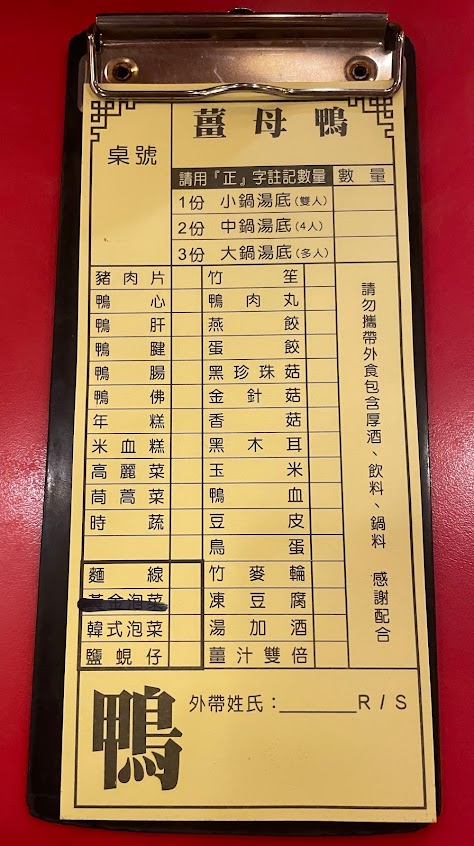 薑母鴨
桌號
請用『正』字註記數量 數量
1份 小鍋湯底(雙人)
2份 中鍋湯底(4人)
3份 大鍋湯底(多人)
豬肉片 竹笙
鴨心 鴨肉丸
鴨肝 燕餃
鴨腱 蛋餃
鴨腸 黑珍珠菇
鴨佛 金針菇
年糕 香菇
米血糕 黑木耳
高麗菜 玉米
茼蒿菜 鴨血
時蔬 豆皮
鳥蛋
麵線 竹麥輪
黃金泡菜 凍豆腐
韓式泡菜 湯加酒
鹽蜆仔 薑汁雙倍
請勿攜帶外食包含厚酒、飲料、鍋料 感謝配合
鴨
外帶姓氏：______R / S